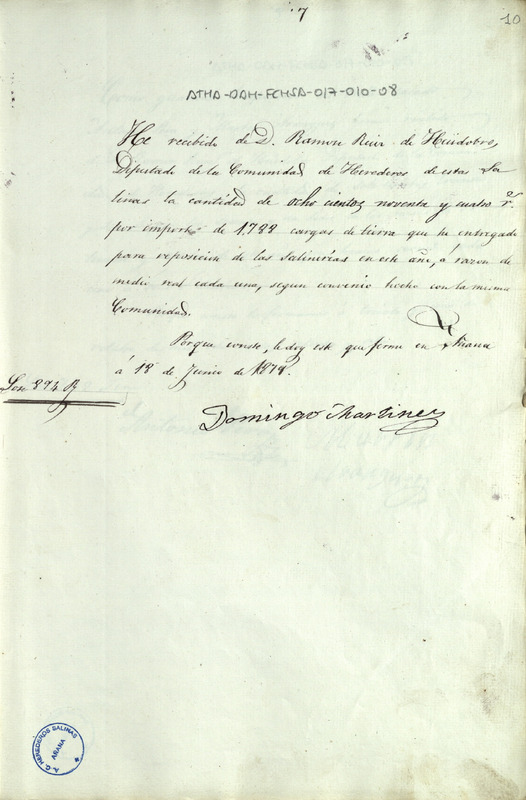 7
10
ATHA-DAH-FCHSA-017-010-08
He recibido de D. Ramon Ruiz de Huidobro,
Diputado de la Comunidad de Herederos de estas Sa
linas la cantidad de ocho cientos noventa y cuatro r.s
por importe de 1788 cargas de tierra que he entregado
para reposicion de las salinerías en este año, á razon de
medio real cada una, segun convenio hecho con la misma
Comunidad.
Porque conste, le doy este que firmo en Añana
á 18 de Junio de 1878.
Son 894 R
Domingo Martinez
A. C. HEREDEROS SALINAS
AÑANA